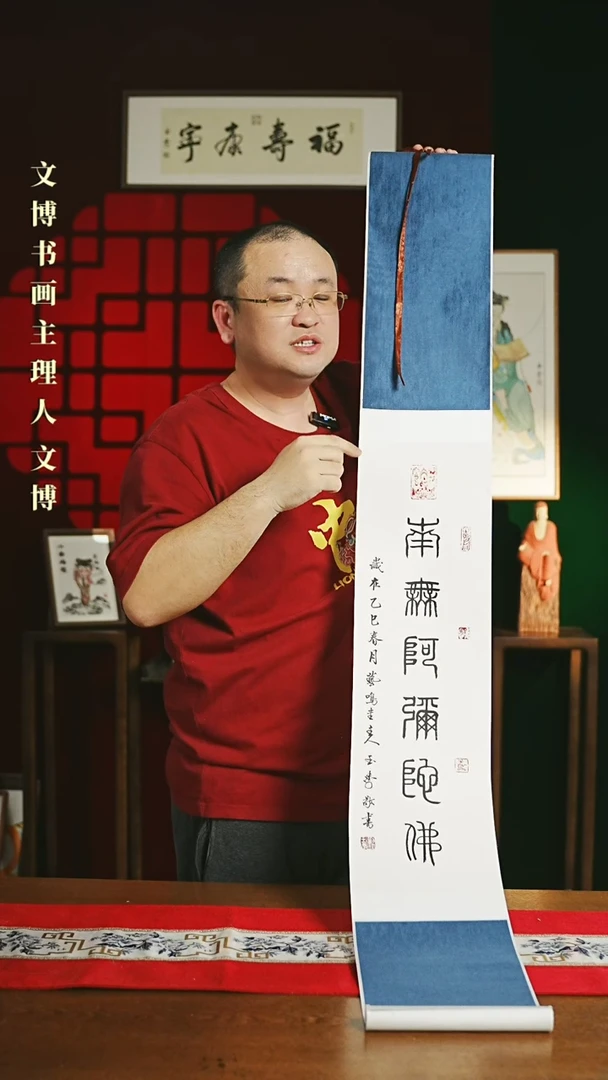 文博书画主理人文博
福壽康寧
南無阿彌陀佛
歲在乙巳春月藝鳴敬書
LION